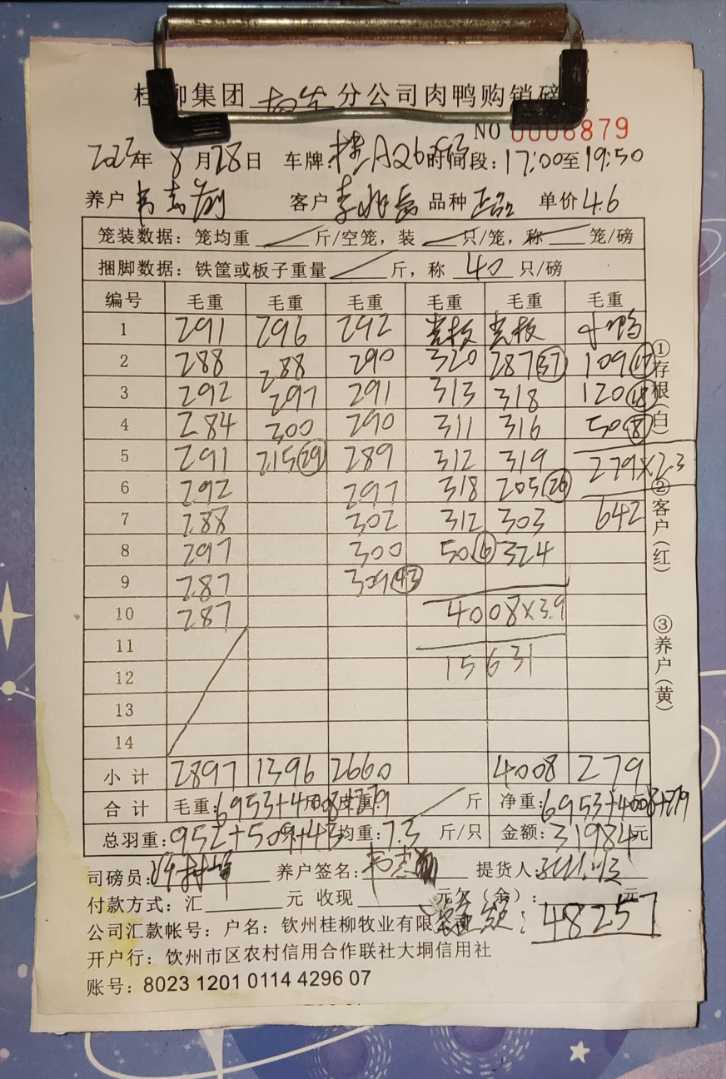 桂柳集团 分公司肉鸭购销磅
NO 0006879
2023年 8月28日 车牌:桂A 时间段:17:00至19:50
养户 客户 品种 正品 单价4.6
笼装数据:笼均重 斤/空笼,装 只/笼,称 笼/磅
捆脚数据:铁筐或板子重量 斤,称 40 只/磅
编号 毛重 毛重 毛重 毛重 毛重 毛重
1 291 296 292 光板 光板 小鸭
2 288 288 290 320 287 (37) 109 (17)
3 292 297 291 313 318 120 (18)
4 284 300 290 311 316 50 (8)
5 291 215 (29) 289 312 319 279×2.3
6 292 297 318 205 (26) 642
7 288 302 312 303
8 297 300 50 (6) 324
9 287 309 (43)
10 287 4008×3.9
11
12 15631
13
14
小计 2897 1396 2660 4008 279
合计 毛重:6953+4008+279 斤 净重:6953+4008+279
总羽重:952+509+43 均重:7.3 斤/只 金额:31984元
司磅员: 养户签名: 提货人:
付款方式:汇 元 收现 元欠(余): 元
总额:48257
公司汇款帐号:户名:钦州桂柳牧业有限
开户行:钦州市区农村信用合作联社大垌信用社
账号:8023 1201 0114 4296 07
①存根(白)
②客户(红)
③养户(黄)